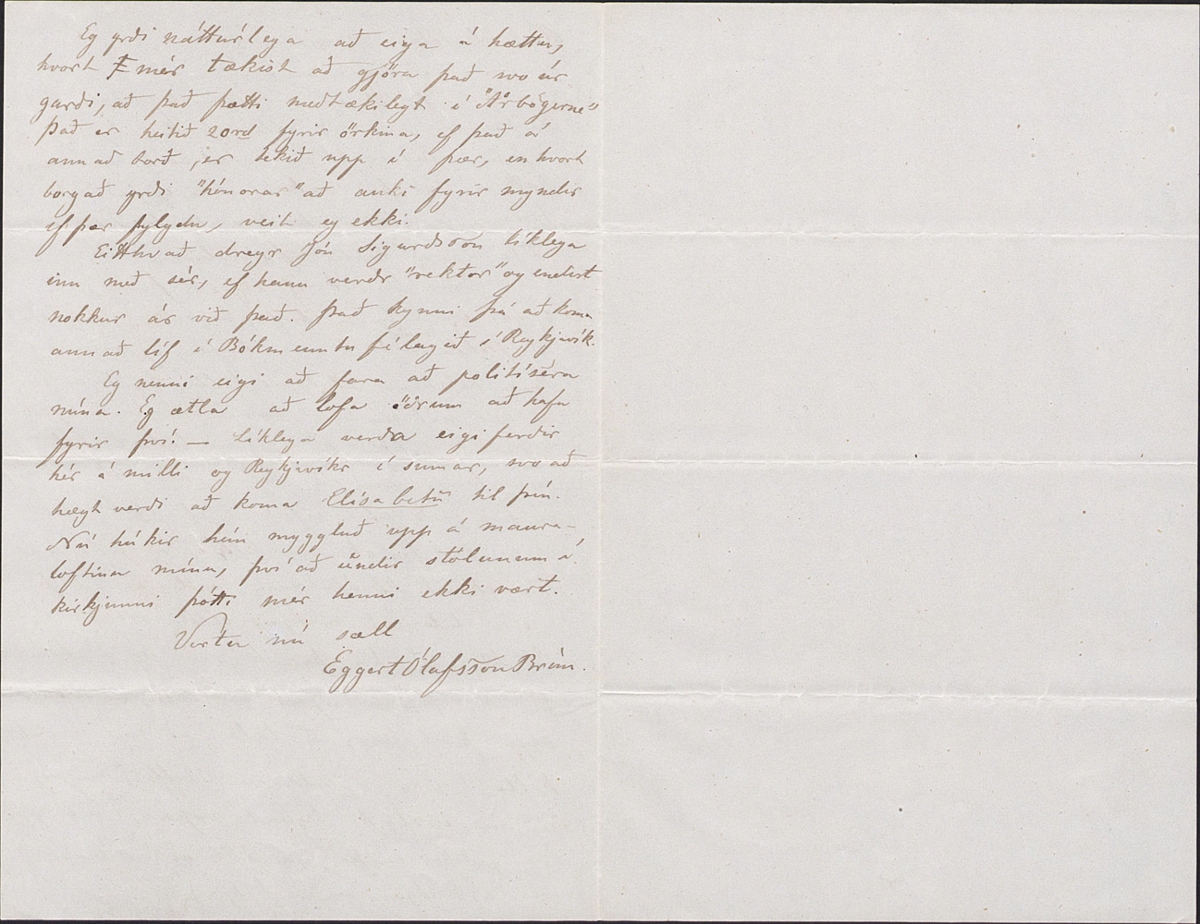 Eg yrði náttúrlega að eiga á hættu,
hvort mér tækist að gjöra það svo úr
garði, að það þætti meðtækilegt í "Årbögerne"
Það er heitið 20rd fyrir örkina, ef það á
annað borð, er tekið upp í þær, en hvort
borgað yrði "hónorar" að auki fyrir myndir
ef þær fylgdu, veit eg ekki.
Eitthvað dregr Jón Sigurdsson líklega
inn með sér, ef hann verðr "rektor" og endist
nokkur ár við það. Það kynni þá að koma
annað líf í Bókmenntafélagið í Reykjavík.
Eg nenni eigi að fara að politísera
núna. Eg ætla að lofa öðrum að hafa
fyrir því! — Líklega verða eigi ferðir
hér á milli og Reykjavíkr í sumar, svo að
hægt verði að koma Elísabetu til þín.
Nú húkir hún mygluð upp á maura-
loftinu mínu, því að undir stólunum á
kirkjunni þótti mér henni ekki vært.
Vertu nú sæll
Eggert Ólafsson Brím.